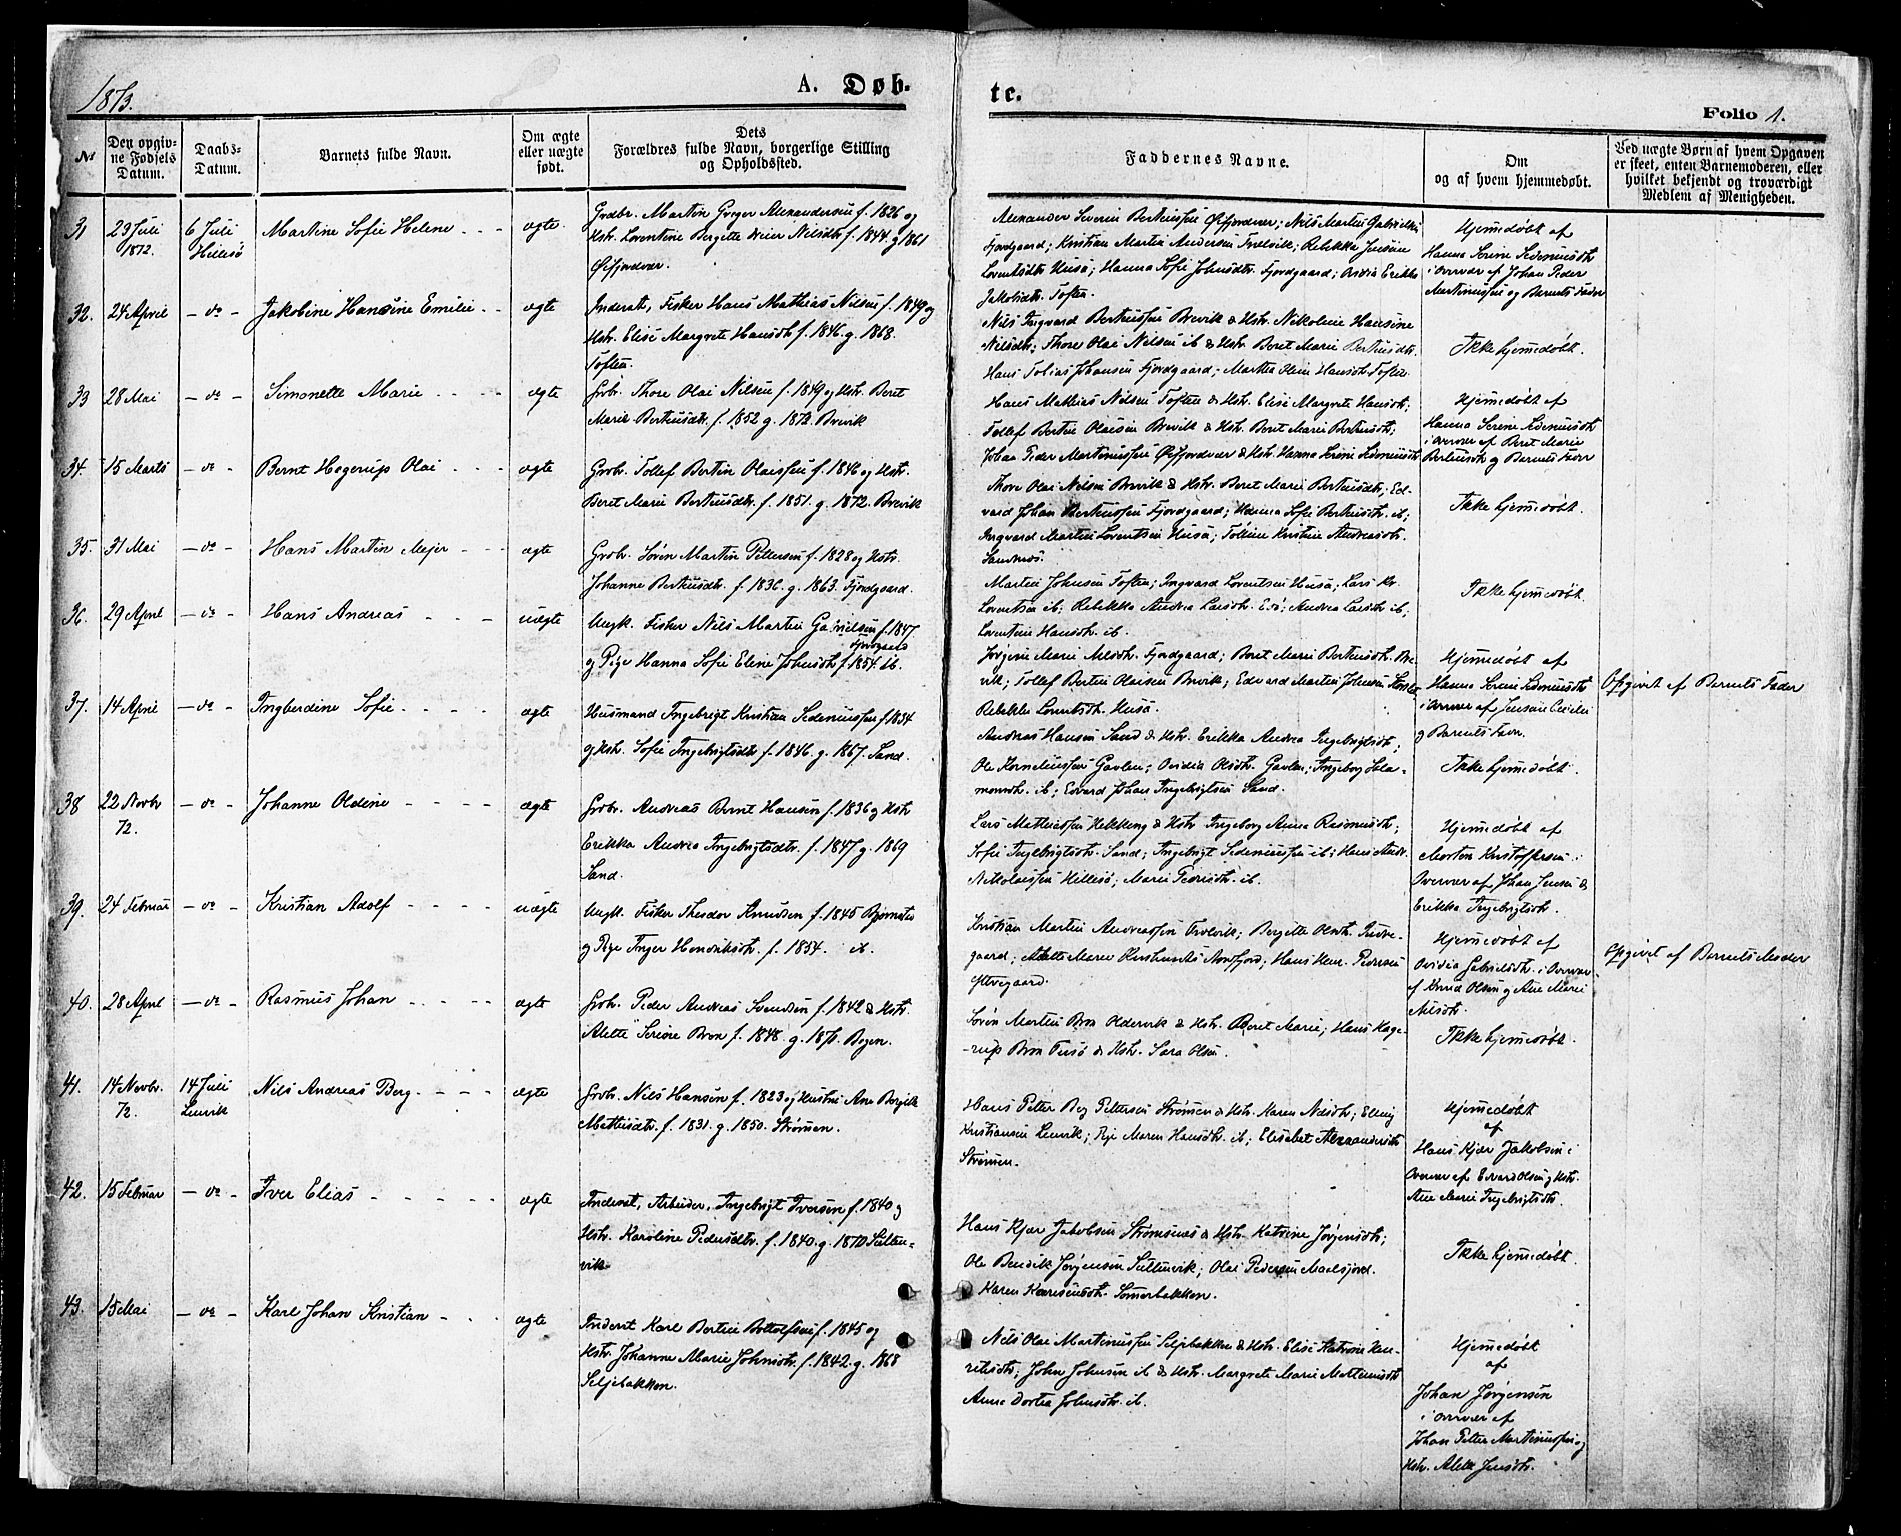 1873.
A. Døb-
te.
Folio 1.
№
Den opgiv-
ne Fødsels
Datum.
Daabs-
Datum.
Barnets fulde Navn.
Om ægte
eller uægte
født.
Dets
Forældres fulde Navn, borgerlige Stilling
og Opholdssted.
Faddernes Navne.
Om
og af hvem hjemmedøbt.
Ved uægte Børn af hvem Opgaven
er skeet, enten Barnemoderen, eller
hvilket bekjendt og troværdigt
Medlem af Menigheden.
31
23 Juli
1872.
6 Juli
Hillesø
Martine Sofie Helene
ægte
Grdbr. Martin Greger Alexandersen f. 1826 og
Hstr. Lorentine Bergitte Meier Nilsdtr. f. 1844. g. 1861
Øifjordvær.
Alexander Severin Bertheussen Øifjordvær; Nils Martin Gabrielsen
Fjordgaard; Kristian Martin Andersen; Rebekka Jensine
Lorentsdtr. Husø; Hanna Sofie Johnsdtr. Fjordgaard; Ovidia Erikka
Jakobsdtr. Toften.
Hjemedøbt af
Hanna Serine Sedeniusdtr.
i Overvær af Johan Peder
Martinussen og Barnets Fader
32.
24 April
– do –
Jakobine Hansine Emilie
ægte
Inderst, Fisker Hans Mathias Nilsen f. 1849 og
Hstr. Elise Margrete Hansdtr. f. 1846. g. 1868.
Toften.
Nils Ingvard Bertheussen Brevik & Hstr. Nikoline Hansine
Nilsdtr; Thore Olai Nilsen ib & Hstr. Beret Marie Bertheusdtr.
Hans Tobias Johansen Fjordgaard; Marthe Oline Hansdtr. Toften.
Ikke hjemedøbt.
33
28 Mai
– do –
Simonette Marie
ægte
Grbr. Thore Olai Nilsen f. 1849 og Hstr. Beret
Marie Bertheusdtr. f. 1852 g. 1872. Brevik
Hans Mathias Nilsen Toften & Hstr. Elise Margrete Hansdtr;
Tollef Bertin Olaisen Brevik & Hstr. Beret Marie Bertheusdtr;
Johan Peder Martinussen Øifjordvær & Hstr. Hanna Serine Sedeniusdtr
Hjemedøbt af
Hanna Serine Sedeniusdtr
i Overvær af Beret Marie
Bertheusdtr og Barnets Fader
34.
15 Marts
– do –
Bernt Hegerup Olai
ægte
Grbr. Tollef Bertin Olaissen f. 1846 og Hstr.
Beret Marie Bertheusdtr. f. 1851. g. 1872. Brevik
Thore Olai Nilsen Brevik & Hstr. Beret Marie Bertheusdtr; Ed-
vard Johan Bertheussen Fjordgaard; Hanna Sofie Bertheusdtr. ib;
Ingvard Martin Lorentsen Husø; Tolline Kristine Andreasdtr.
Sandnes.
Ikke hjemedøbt.
35.
31 Mai
– do –
Hans Martin Mejer
ægte
Grbr. Søren Martin Pettersen f. 1828 og Hstr.
Johanne Bertheusdtr. f. 1836. g. 1863. Fjordgaard.
Martin Johnsen Toften; Ingvard Lorentsen Husø; Lars Kr.
Lorentsen ib; Rebekka Andrea Larsdtr. Ersø; Andrea Larsdtr ib;
Lorentine Hansdtr. ib.
Ikke hjemedøbt.
36.
29 April
– do –
Hans Andreas
uægte
Ungk. Fisker Nils Martin Gabrielsen f. 1847
Fjordgaard
og Pige Hanna Sofie Eline Johnsdtr f. 1854. ib.
Jørgine Marie Nilsdtr. Fjordgaard; Beret Marie Bertheusdtr. Bre-
vik; Tollef Bertin Olaisen Brevik; Edvard Martin Johnsen
Rebekka Lorentsdtr. Husø.
Hjemedøbt af
Hanna Serine Sedeniusdtr
i Overvær af Jensine Cecilie
og Barnets Farm.
Opgivet af Barnets Fader
37.
14 April
– do –
Ingberdine Sofie
ægte
Husmand Ingebrigt Kristian Sedeniussen f. 1834
og Hstr. Sofie Ingebrigtsdtr f. 1846. g. 1867. Sand.
Andreas Hansen Sand & Hstr. Erikka Andrea Ingebrigtsdtr;
Ole Korneliussen Gavlen; Ovidia Olsdtr. Gavlen; Ingeborg Salo-
monsdtr. ib; Edvard Johan Ingebrigtsen Sand.
Ikke hjemedøbt.
38
22 Novbr
72.
– do –
Johanne Oldine
ægte
Grbr. Andreas Bernt Hansen f. 1836 og Hstr
Erikka Andrea Ingebrigtsdtr. f. 1847 g. 1869
Sand.
Lars Mathiassen Hekking & Hstr Ingeborg Anna Rasmusdtr;
Sofie Ingebrigtsdtr. Sand; Ingebrigt Sedeniussen ib; Hans Andr.
Nikolaissen Hillesø; Marie Pedersdtr. ib.
Hjemedøbt af
Morten Kristoffersen i
Overvær af Johan Jensen &
Erikka Ingebrigtsdtr.
39.
24 Februar
– do –
Kristian Adolf
uægte
Ungk. Fisker Theodor Knudsen f. 1845
og Pige Inger Henriksdtr. f. 1854. ib.
Kristian Martin Andreassen; Bergitte Olsdtr. Indre-
gaard; Hans Henr. Pedersen
Yttregaard.
Hjemedøbt af
Ovidia Gabrielsdtr. i Overvær
af Knud Olsen og Ane Marie
Nilsdtr.
Opgivet af Barnets Moder
40.
28 April
– do –
Rasmus Johan
ægte
Grbr. Peder Andreas Svendsen f. 1842 & Hstr.
Alette Serine Bron f. 1848. g. 1871. Bogen.
Søren Martin Bron Oldervik & Hstr. Beret Marie; Hans Hage-
-rup Bron Tussø & Hstr. Sara Olsen.
Ikke hjemedøbt.
41.
14 Novbr.
72.
14 Juli
Lenvik
Nils Andreas Berg
ægte
Grbr. Nils Hansen f. 1823 og Hustru Ane Bergitte
Mathisdtr. f. 1831. g. 1850. Strømen.
Hans Petter Berg Pettersen Strømen & Hstr. Karen Nilsdtr;
Kristiansen Lenvik; Pige Maren Hansdtr. ib; Elisabet Alexandersdtr
Strømen.
Hjemedøbt
af
Hans Kjær Jakobsen i
Overvær af Edvard Olsen og Hstr.
Ane Marie Ingebrigtsdtr
42.
15 Februar
– do –
Iver Elias
ægte
Inderst, Arbeider, Ingebrigt Iversen f. 1840 og
Hstr. Karoline Pedersdtr. f. 1840. g. 1870 Sulten-
vik
Hans Kjær Jakobsen Strømsnes & Hstr. Katrine Jørgensdtr;
Ole Bendik Jørgensen Sultenvik; Olai Pedersen Maelfjord.
Karen Kareliusdtr. Somerbakken.
Ikke hjemedøbt.
43.
15 Mai
– do –
Karl Johan Kristian
ægte
Inderst Karl Bertin Bottolfsen f. 1845 og
Hstr. Johanne Marie Johnsdtr. f. 1842. g. 1868
Seljebakken.
Nils Olai Martinussen Seljebakken & Hstr. Elise Katrine Hen-
riksdtr; John Johnsen ib & Hstr. Margrete Marie
Anne Dortea Johnsdtr. ib.
Hjemedøbt
af
Johan Jørgensen
i Overvær af
Johan Petter Martinussen og
Hstr. Alette Jensdtr.